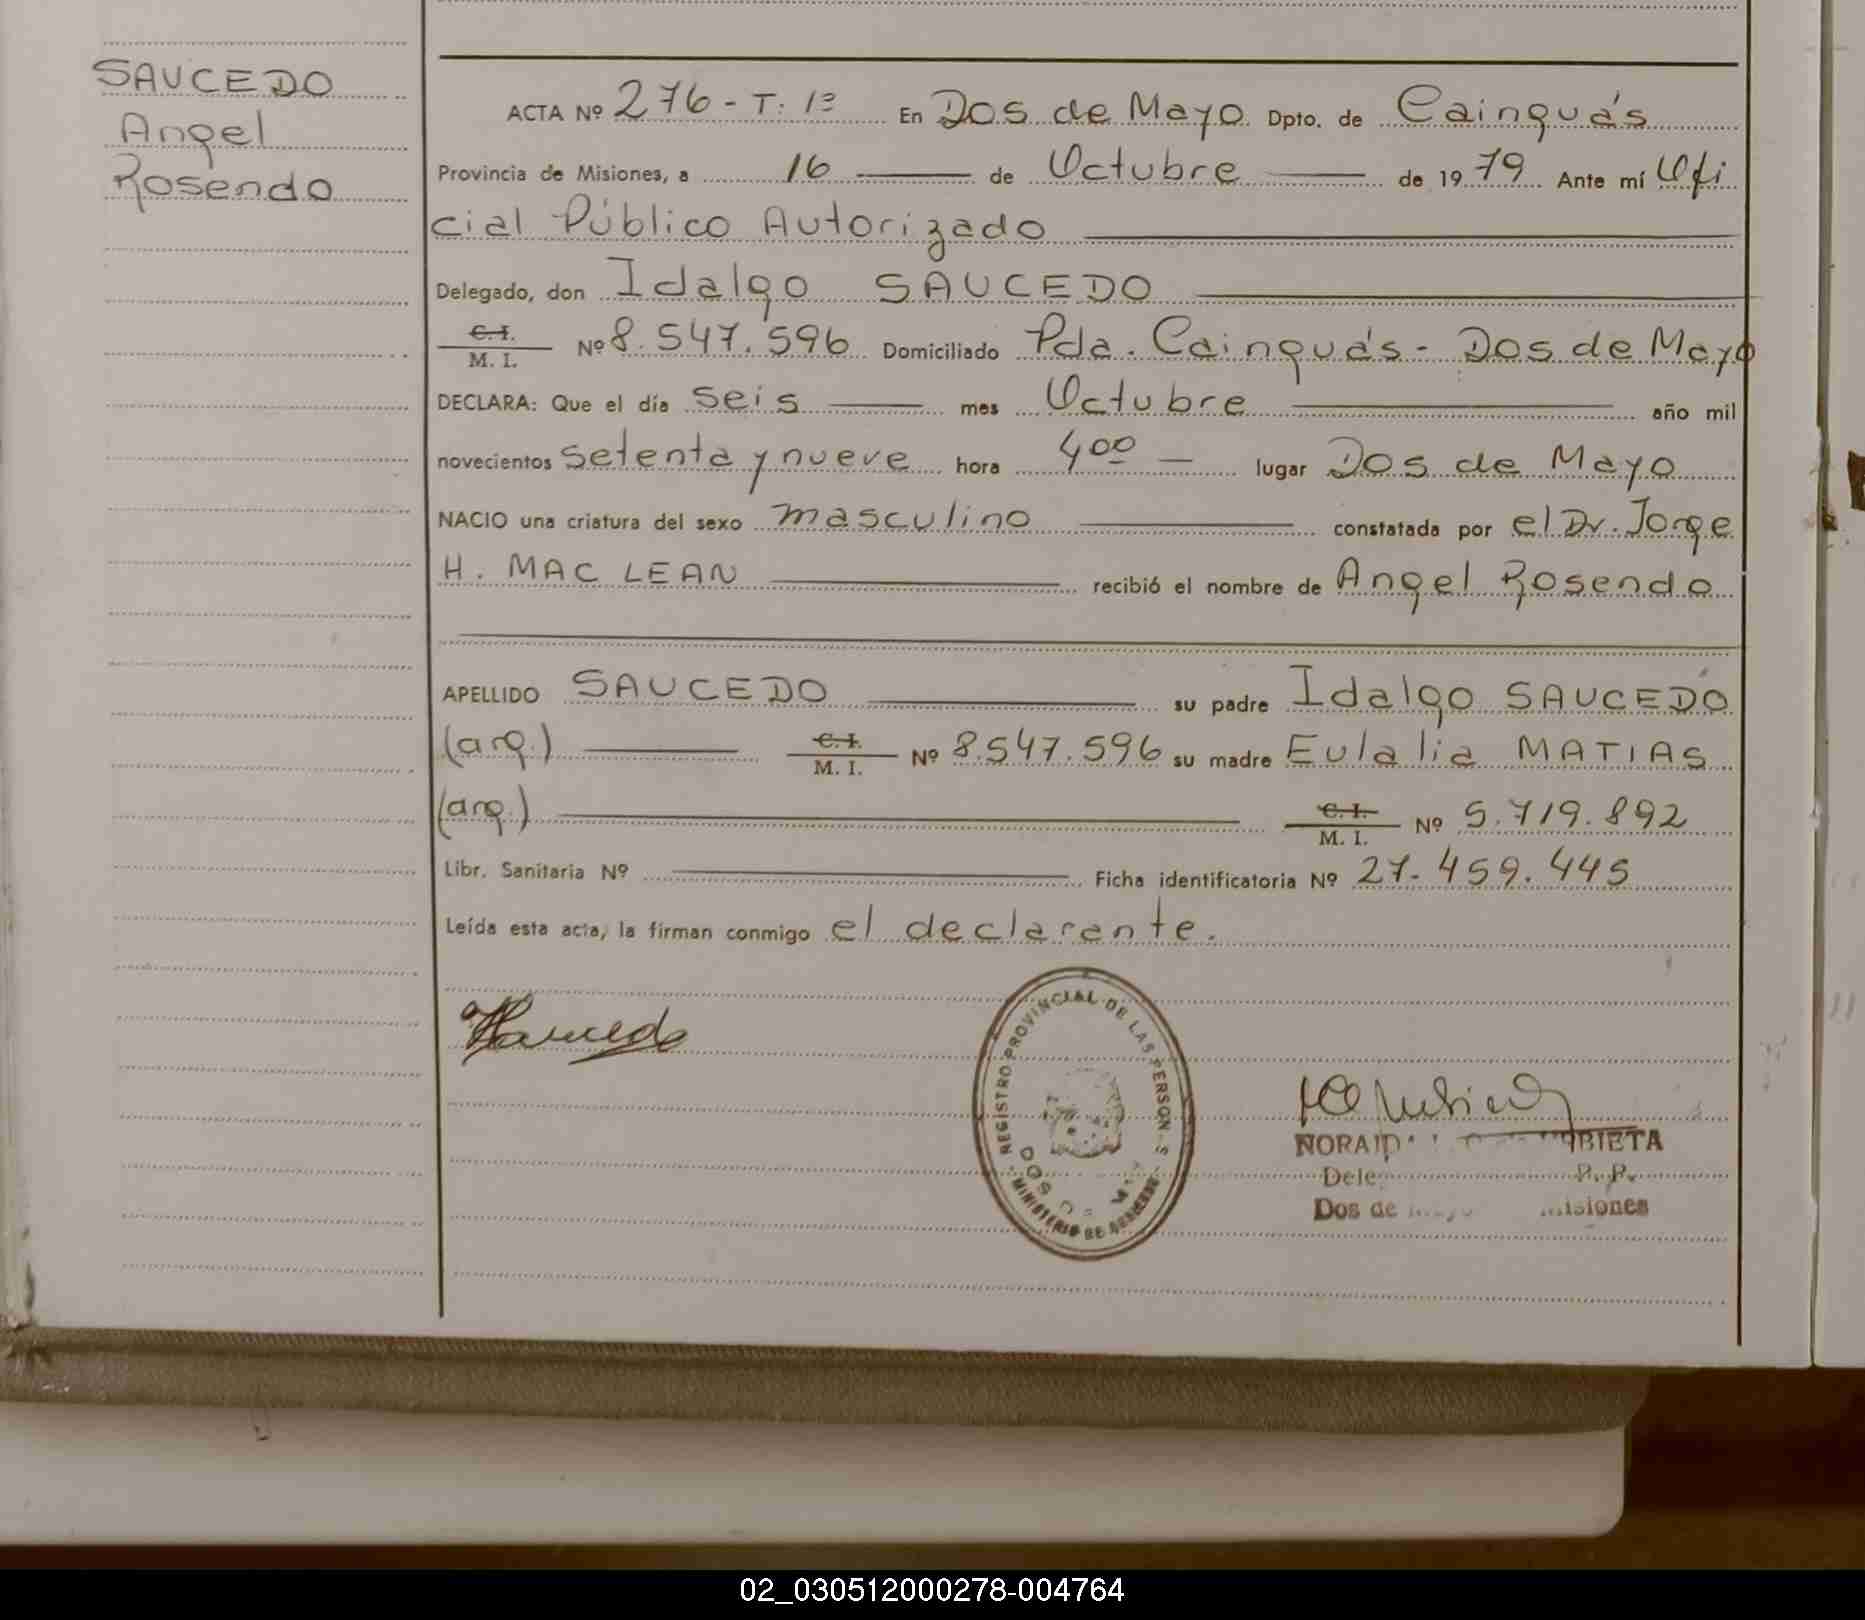 SAUCEDO
Angel
Rosendo
ACTA Nº 276 - T: 1º En Dos de Mayo Dpto. de Cainguás
Provincia de Misiones, a 16 de Octubre de 1979 Ante mí Ofi
cial Público Autorizado
Delegado, don Idalgo SAUCEDO
C. I.
M. I. Nº 8.547.596 Domiciliado Pda. Cainguás - Dos de Mayo
DECLARA: Que el día seis mes Octubre año mil
novecientos setenta y nueve hora 400 lugar Dos de Mayo
NACIO una criatura del sexo masculino constatada por el Dr. Jorge
H. MAC LEAN recibió el nombre de Angel Rosendo
APELLIDO SAUCEDO su padre Idalgo SAUCEDO
(arg.) C. I.
M. I. Nº 8.547.596 su madre Eulalia MATIAS
(arg.) C. I.
M. I. Nº 5.719.892
Libr. Sanitaria Nº Ficha identificatoria Nº 27.459.445
Leída esta acta, la firman conmigo el declarante.
REGISTRO PROVINCIAL DE LAS PERSONAS
DOS
MINISTERIO DE
Dos de Misiones
02_030512000278-004764